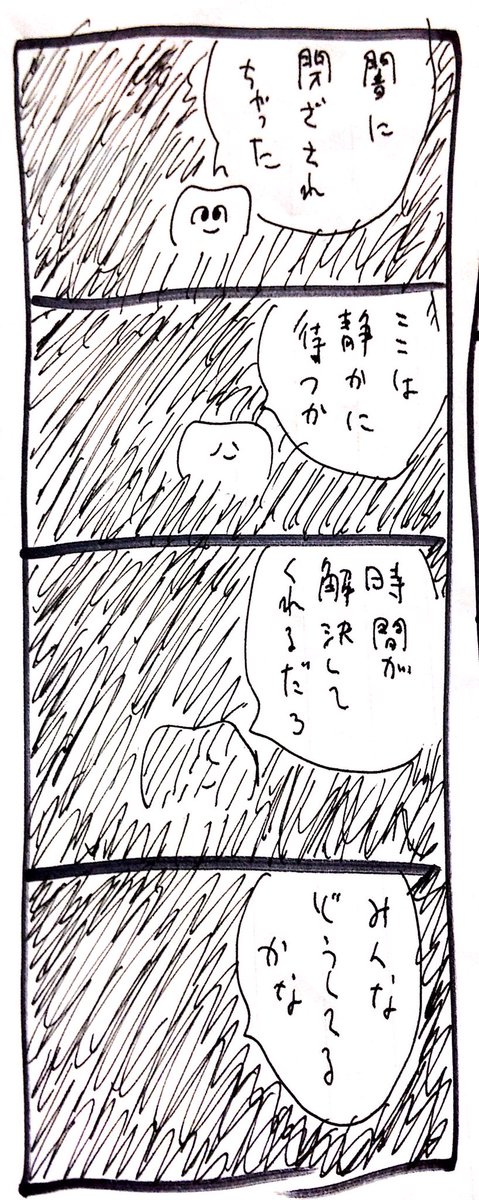 闇に
閉ざされ
ちゃった
ここは
静かに
待つか
時間が
解決して
くれるだろ
みんな
どうしてる
かな